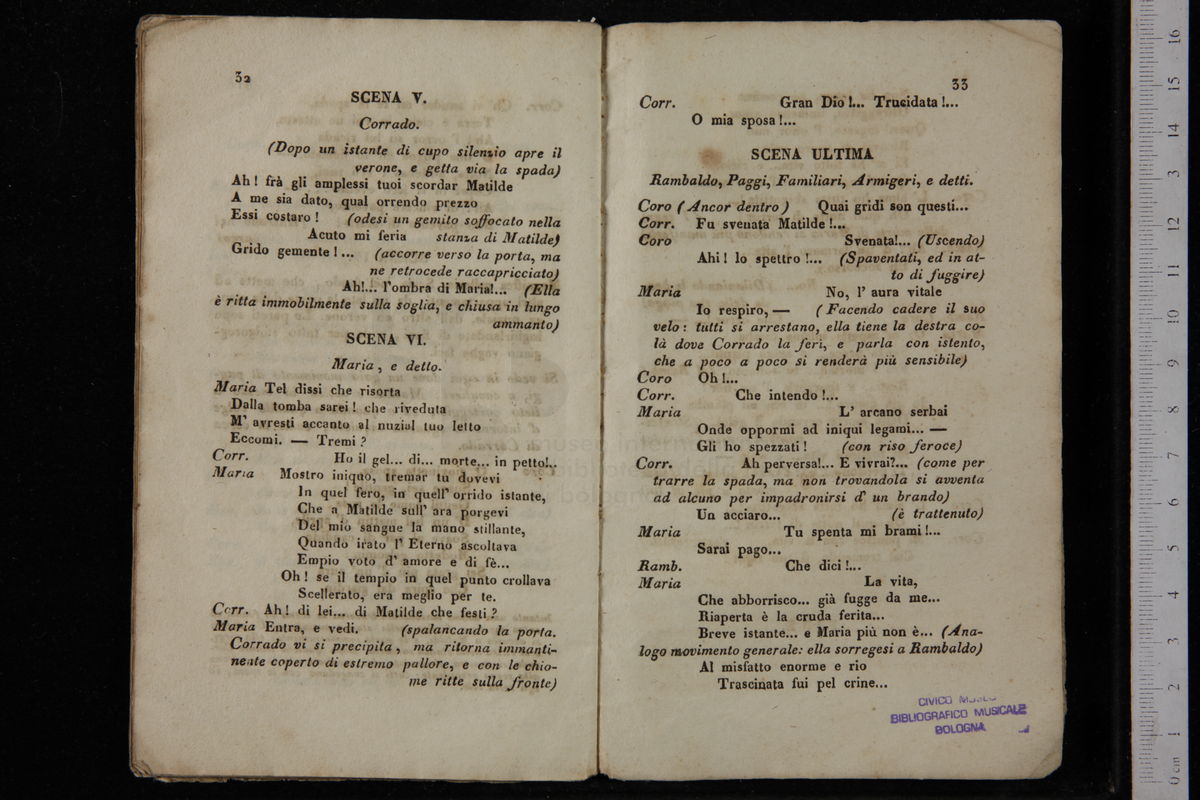 32
SCENA V.
Corrado.
(Dopo un istante di cupo silenzio apre il
verone, e getta via la spada)
Ah! frà gli amplessi tuoi scordar Matilde
A me sia dato, qual orrendo prezzo
Essi costaro! (odesi un gemito soffocato nella
Acuto mi feria stanza di Matilde)
Grido gemente!... (accorre verso la porta, ma
ne retrocede raccapricciato)
Ah!... l'ombra di Maria!... (Ella
è ritta immobilmente sulla soglia, e chiusa in lungo
ammanto)
SCENA VI.
Maria, e detto.
Maria Tel dissi che risorta
Dalla tomba sarei! che riveduta
M' avresti accanto al nuzial tuo letto
Eccomi. — Tremi?
Corr. Ho il gel... di... morte... in petto!..
Maria Mostro iniquo, tremar tu dovevi
In quel fero, in quell' orrido istante,
Che a Matilde sull' ara porgevi
Del mio sangue la mano stillante,
Quando irato l' Eterno ascoltava
Empio voto d' amore e di fè...
Oh! se il tempio in quel punto crollava
Scellerato, era meglio per te.
Corr. Ah! di lei... di Matilde che festi?
Maria Entra, e vedi. (spalancando la porta.
Corrado vi si precipita, ma ritorna immanti-
nente coperto di estremo pallore, e con le chio-
me ritte sulla fronte)
33
Corr. Gran Dio!... Trucidata!...
O mia sposa!...
SCENA ULTIMA
Rambaldo, Paggi, Familiari, Armigeri, e detti.
Coro (Ancor dentro) Quai gridi son questi...
Corr. Fu svenata Matilde!...
Coro Svenata!... (Uscendo)
Ahi! lo spettro!... (Spaventati, ed in at-
to di fuggire)
Maria No, l' aura vitale
Io respiro, — (Facendo cadere il suo
velo: tutti si arrestano, ella tiene la destra co-
là dove Corrado la ferì, e parla con istento,
che a poco a poco si renderà più sensibile)
Coro Oh!...
Corr. Che intendo!...
Maria L' arcano serbai
Onde oppormi ad iniqui legami... —
Gli ho spezzati! (con riso feroce)
Corr. Ah perversa!... E vivrai?... (come per
trarre la spada, ma non trovandola si avventa
ad alcuno per impadronirsi d' un brando)
Un acciaro... (è trattenuto)
Maria Tu spenta mi brami!...
Sarai pago...
Ramb. Che dici!...
Maria La vita,
Che abborrisco... già fugge da me...
Riaperta è la cruda ferita...
Breve istante... e Maria più non è... (Ana-
logo movimento generale: ella sorregesi a Rambaldo)
Al misfatto enorme e rio
Trascinata fui pel crine...
CIVICO
BIBLIOGRAFICO MUSICALE
BOLOGNA
0 cm 1 2 3 4 5 6 7 8 9 10 11 12 13 14 15 16